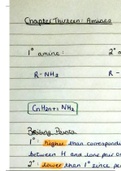 Chapter Thirteen: Amines
1° amine: 2°
R-NH₂ R-
CnH2n+1 NH₂
Boiling Points
1°: Higher than correspond
between H and lone pair o
2°: lower than 1° since